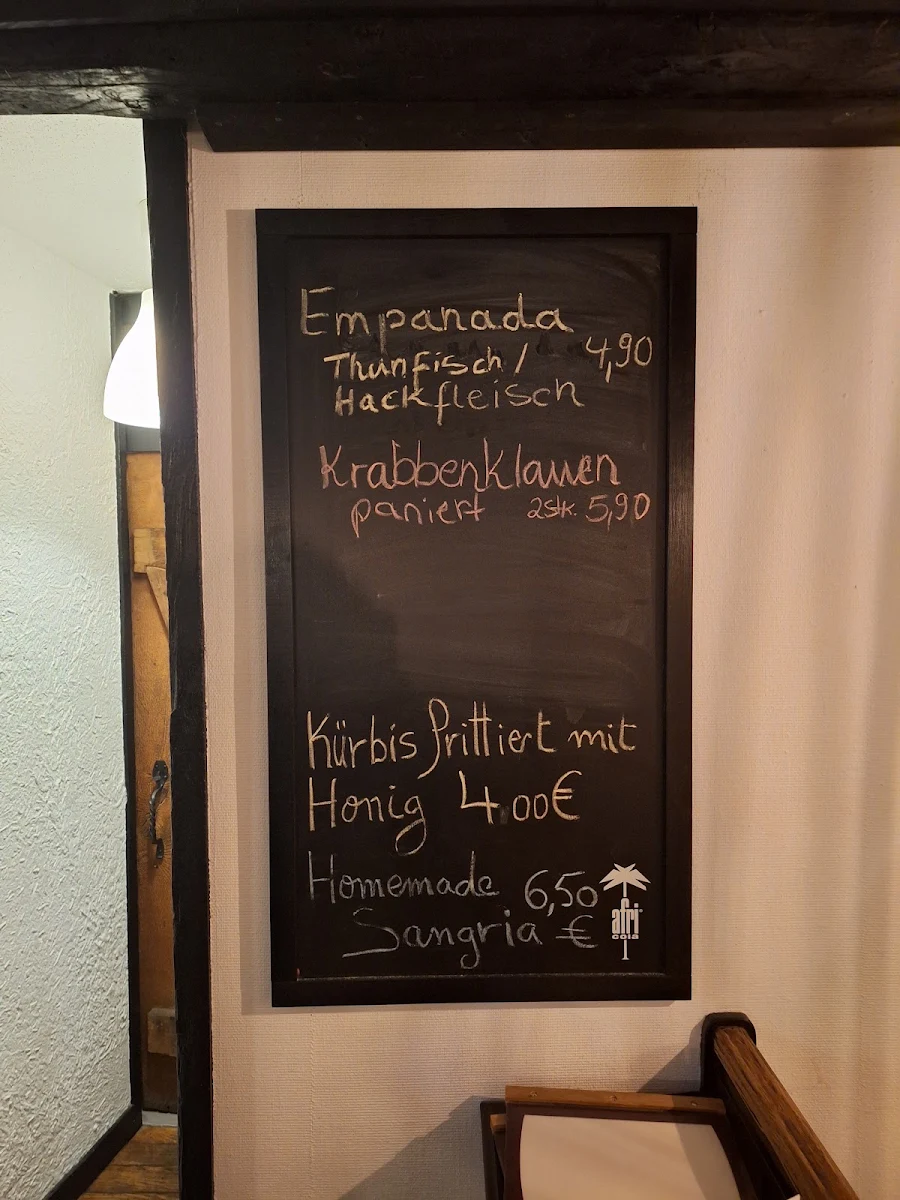 Empanada
Thunfisch/ 4,90
Hackfleisch
Krabbenklauen
paniert 2stk. 5,90
Kürbis frittiert mit
Honig 4.00€
Homemade 6,50
Sangria €
afri
cola